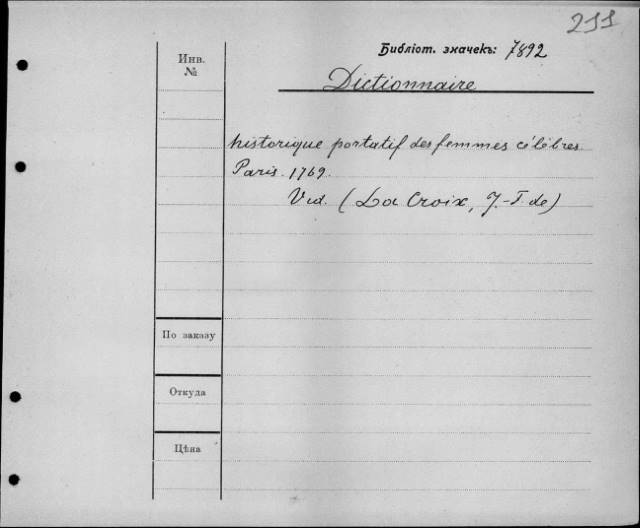 211
Библіот. значекъ: 7892
Инв.
№
Dictionnaire
historique portatif des femmes célèbres
Paris. 1769.
Vid. (La Croix, J.-F. de)
По заказу
Откуда
Цѣна